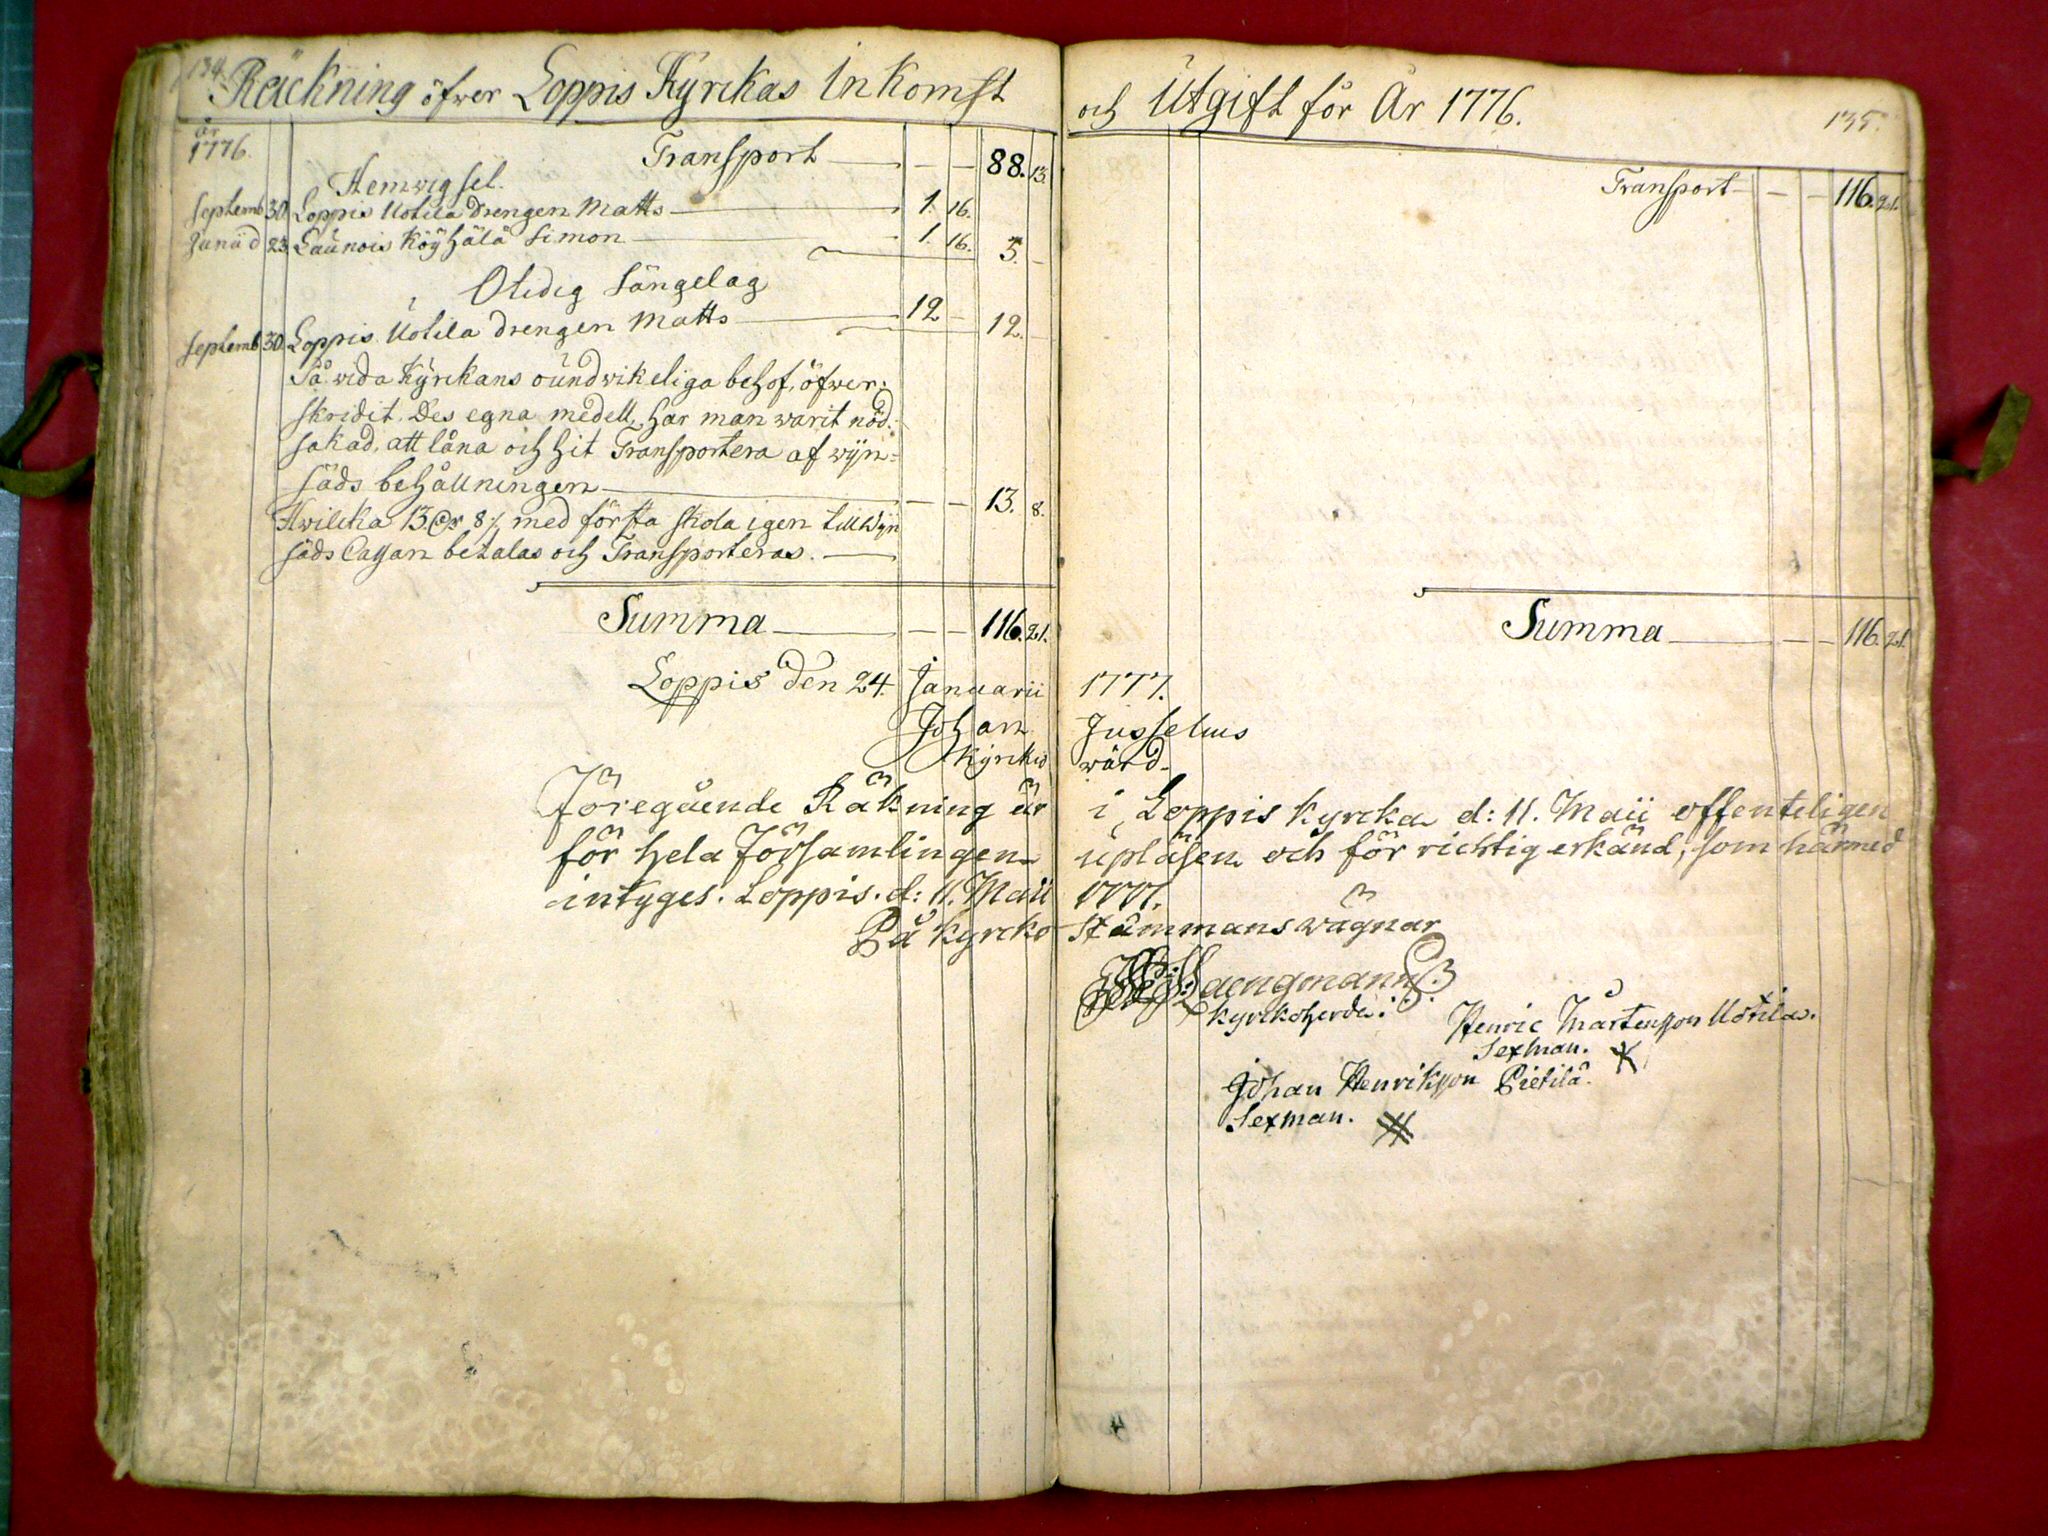 134.
Räckning öfwer Loppis Kyrckas Inkomst och Utgift för År 1776.
135.
år
1776.
Transport — — 88. 13.
Hemwigsel.
Septemb 30 Loppis Uotila Drengen Matts — 1. 16.
Junii d 23 Launois Köyhälä Simon — 1. 16. 3. —
Otidig Sängelag
Septemb 30. Loppis Uotila Drengen Matts — 12 — 12. —
Så wida Kyrckans oundwikeliga behof, öfwer-
skridit Des egna medell, har man warit nöd-
sakad, att låna och hit Transportera af wijn-
säds behållningen — — 13. 8.
Hwilcka 13. Dr 8 / med första skola igen till Wijn
säds Cassan betalas och Transporteras. —
Summa — — 116. 21.
Transport — — 116. 21.
Summa — — 116. 21.
Loppis Den 24. Januarii 1777.
Johan Jusselius
Kyrckio wärd.
Föregående Räkning är i Loppis kyrcka d: 11. Maii offenteligen
för hela Församlingen upläsen och för richtig erkänd, som härmed
intyges. Loppis. d: 11. Maii 1777.
På kyrcko Stämmans wägnar
Laengmann
kyrckoherde.
Henric Mårtensson Uotila.
Sexman.
Johan Henriksson Pietilä.
Sexman.